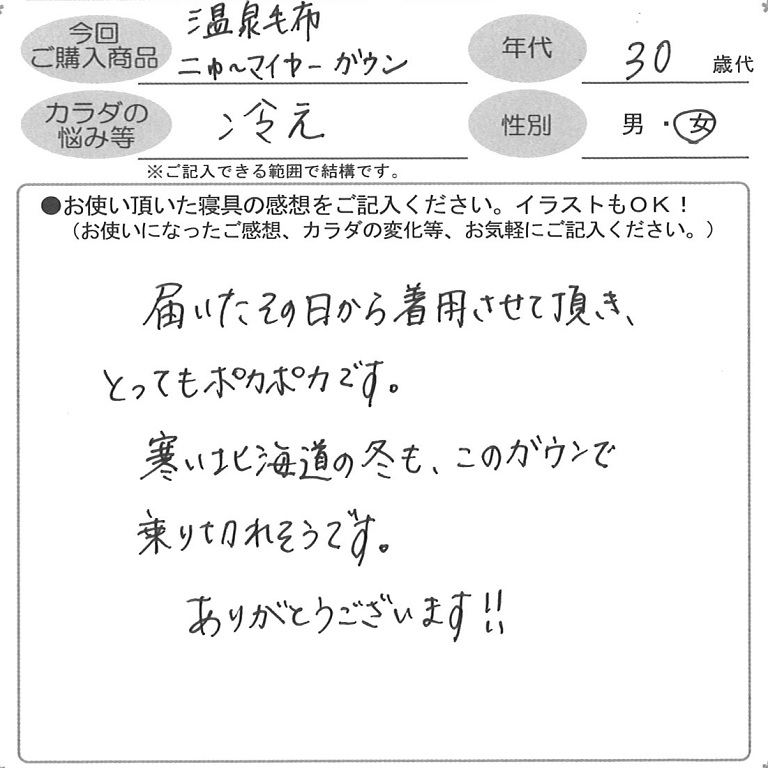 今回
ご購入商品
温泉毛布
ニューマイヤーガウン
年代
30 歳代
カラダの
悩み等
冷え
性別
男・女
※ご記入できる範囲で結構です。
●お使い頂いた寝具の感想をご記入ください。イラストもOK！
（お使いになったご感想、カラダの変化等、お気軽にご記入ください。）
届いたその日から着用させて頂き、
とってもポカポカです。
寒い北海道の冬も、このガウンで
乗り切れそうです。
ありがとうございます!!